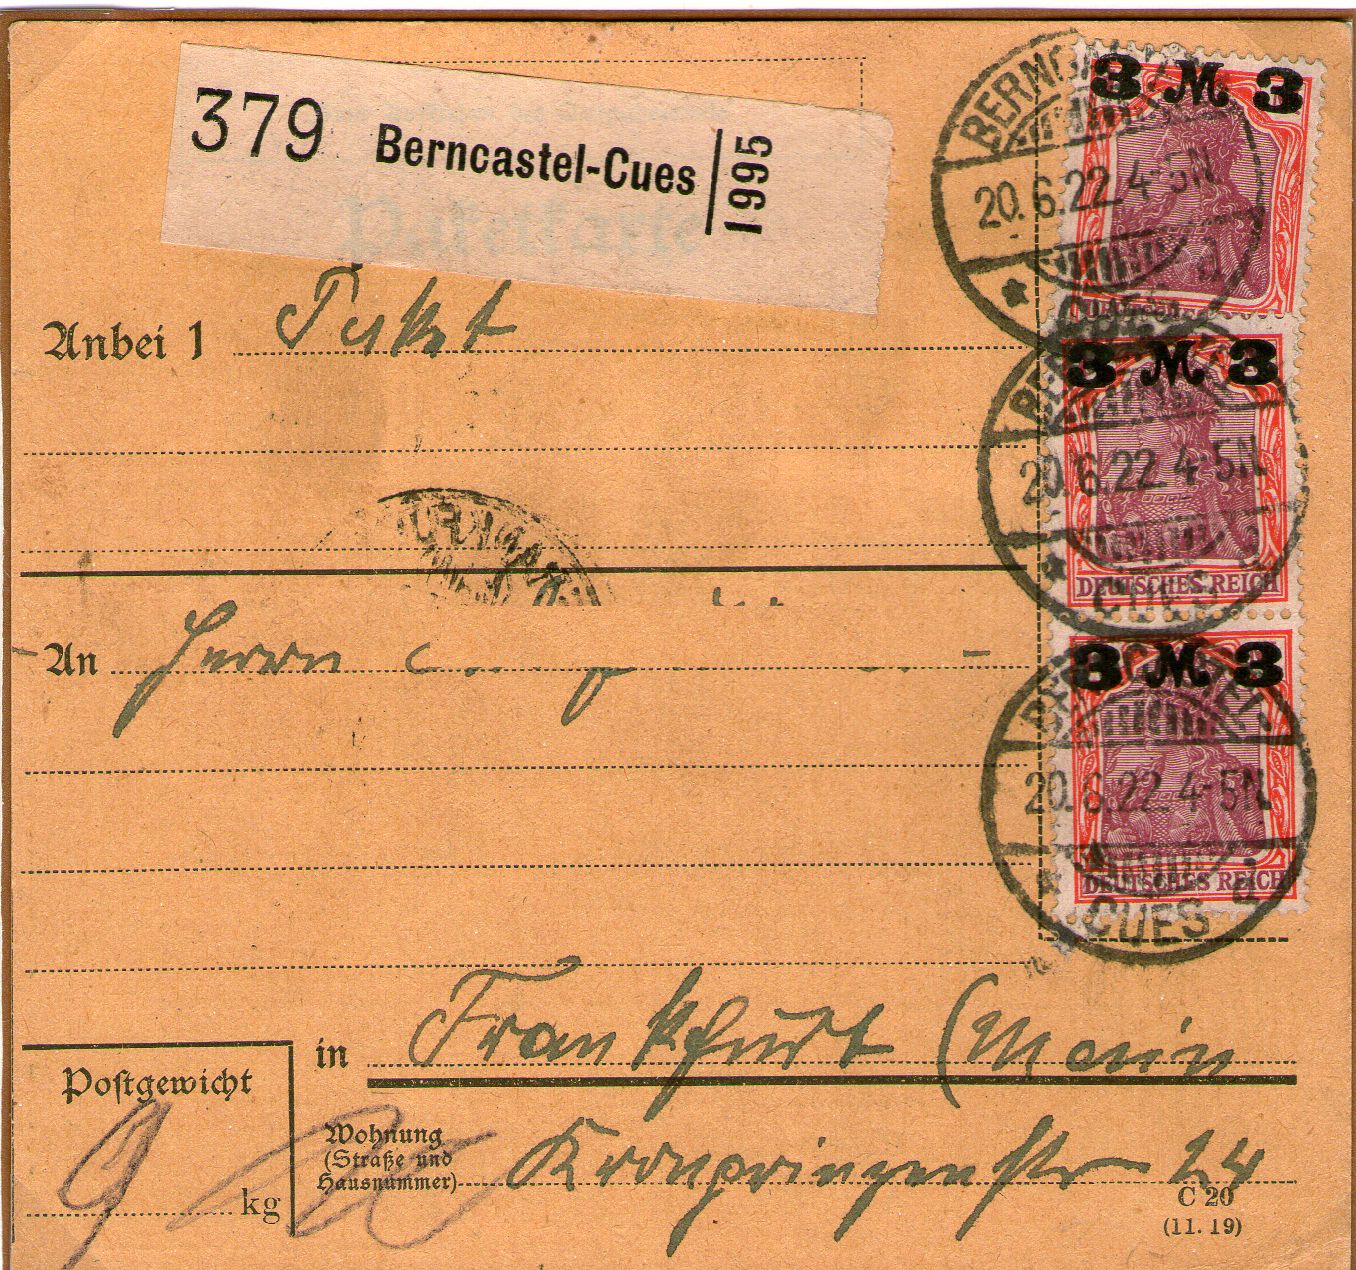 379 Berncastel-Cues 1995
Paketkarte
3 M 3
BERNCASTEL
20.6.22 4-5N
CUES a
Anbei 1 Paket
3 M 3
20.6.22 4-5N
DEUTSCHES REICH
CUES
An Herrn
3 M 3
20.6.22 4-5N
DEUTSCHES REICH
CUES a
in Frankfurt (Main
Postgewicht
9 kg
Wohnung
(Straße und
Hausnummer) Kronprinzenstr 24
C 20
(11. 19)